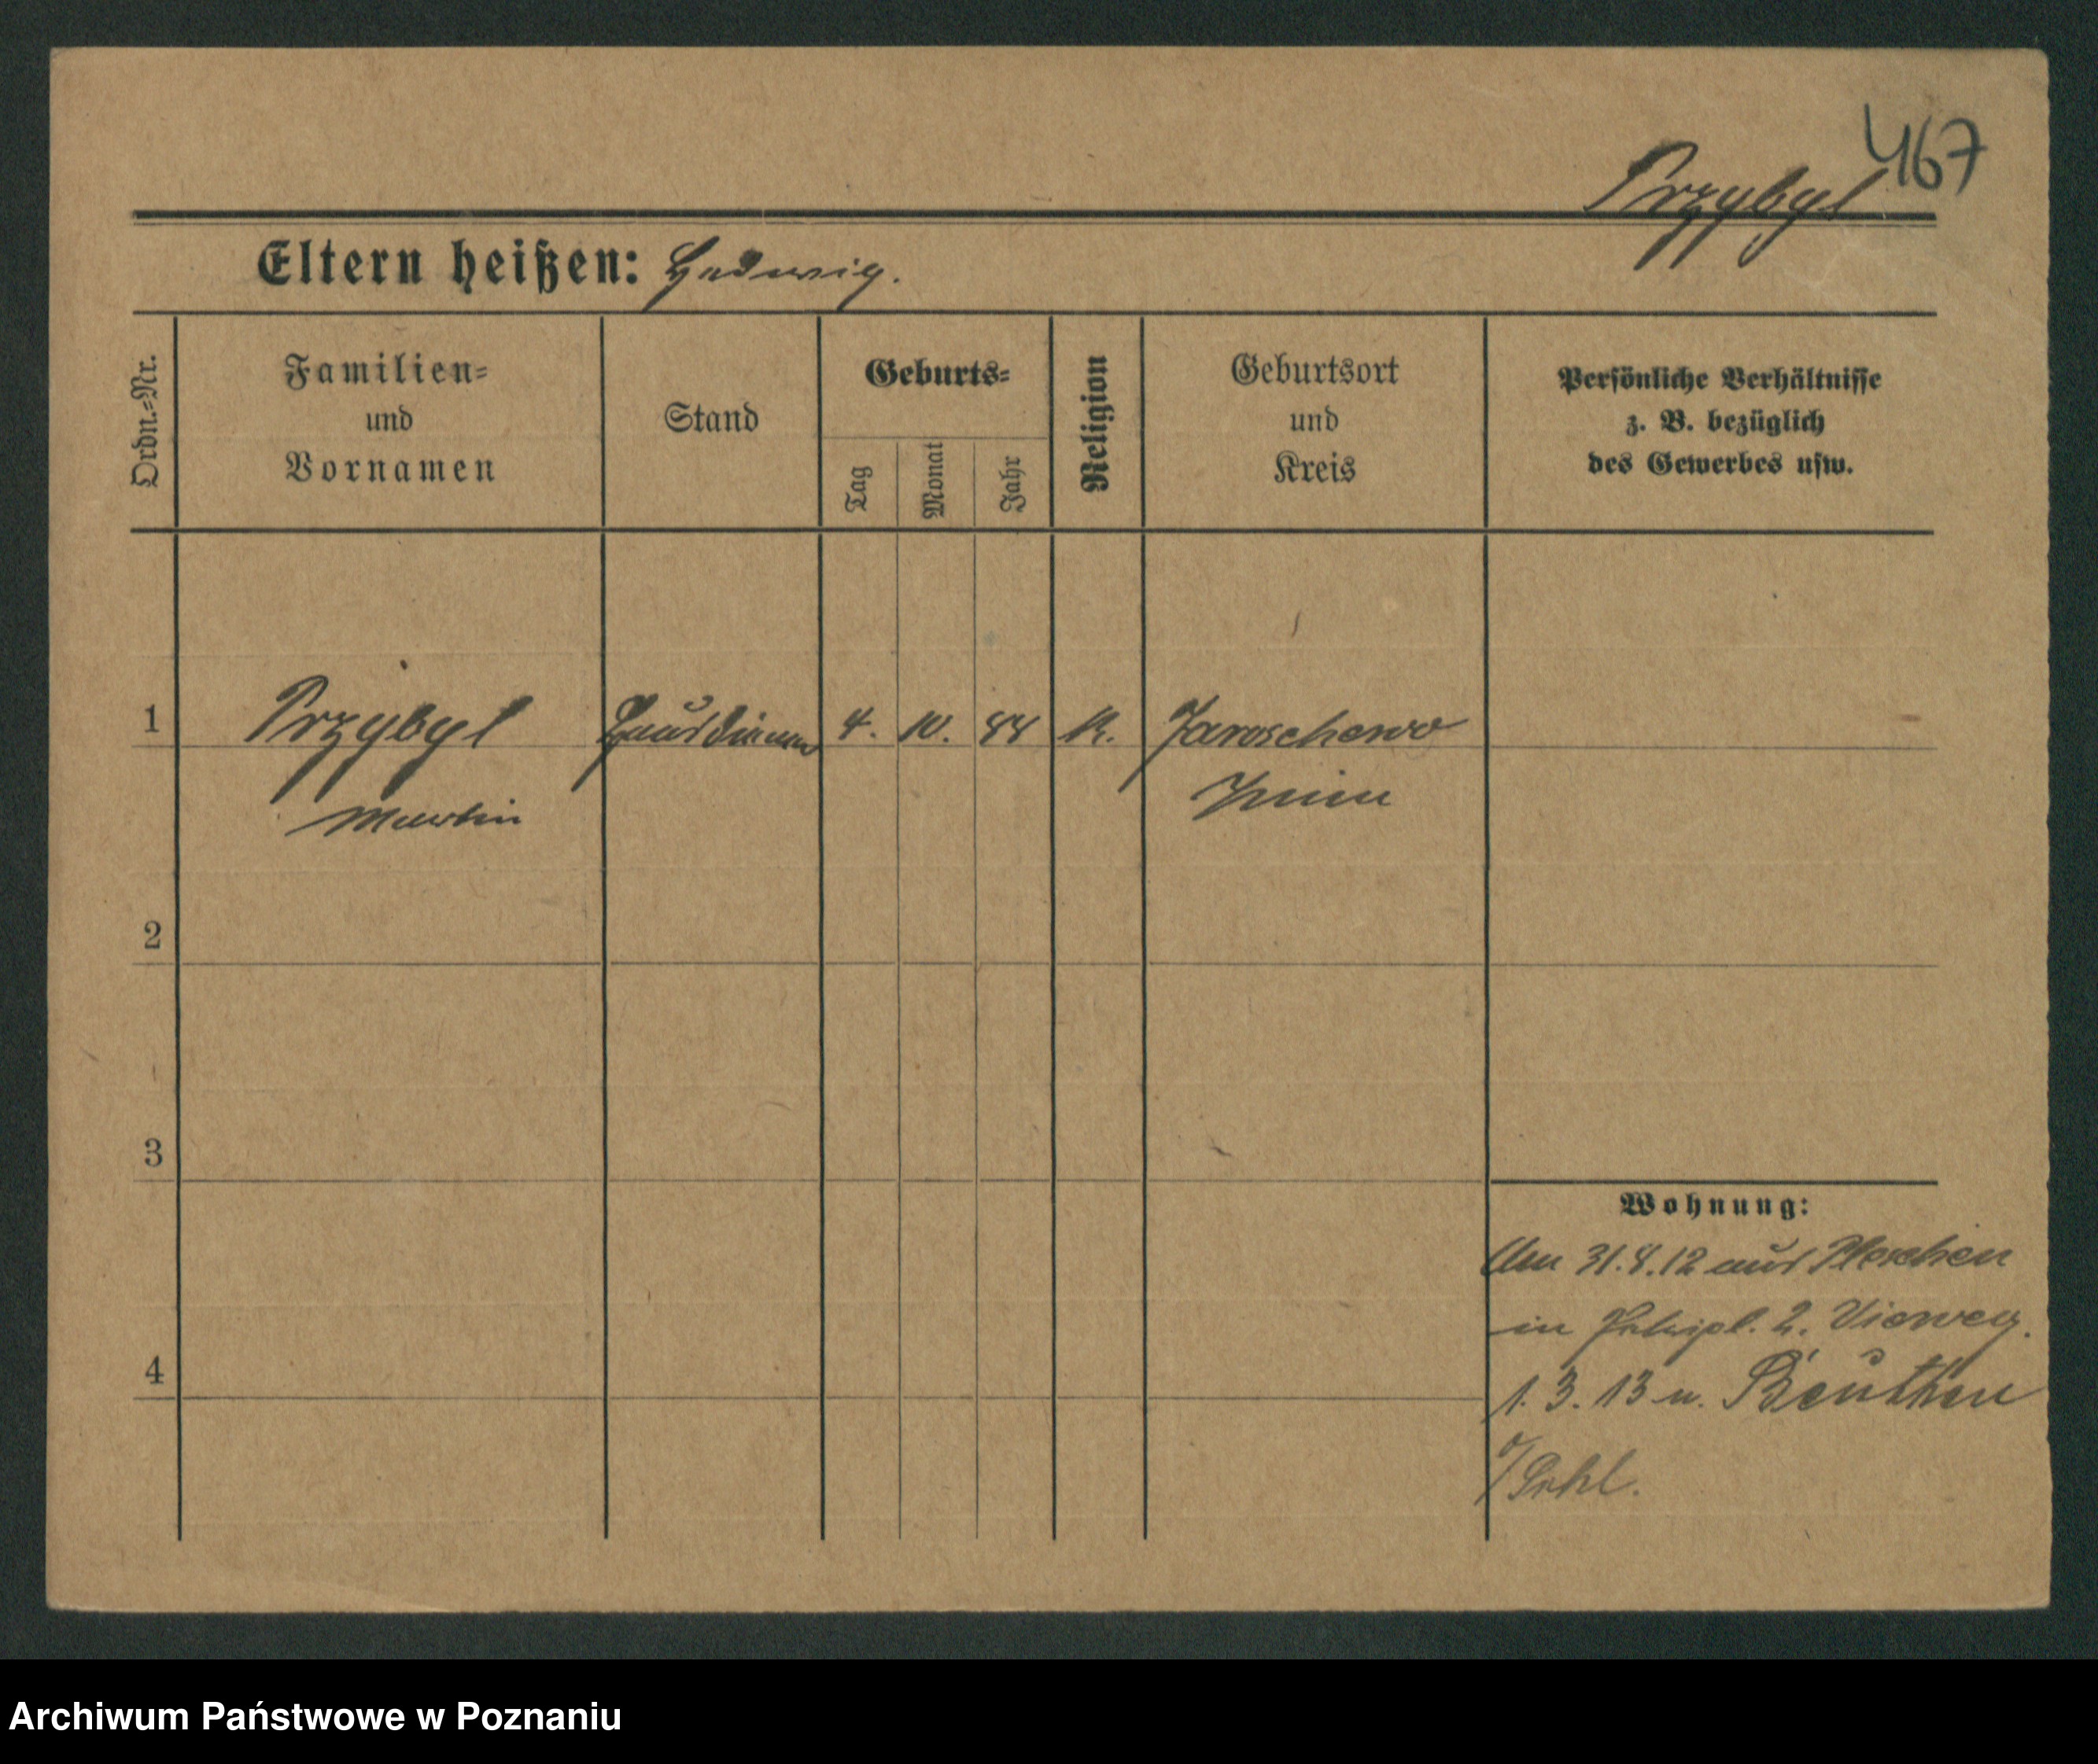 467
Przybyl
Eltern heißen: Hedwig.
Ordn.-Nr.
Familien-
und
Vornamen
Stand
Geburts-
Tag
Monat
Jahr
Religion
Geburtsort
und
Kreis
Persönliche Verhältnisse
z. B. bezüglich
des Gewerbes usw.
1
Przybyl
Martin
Hausdiener
4.
10.
88
K.
Jaroschewo
Znin
2
3
4
Wohnung:
Am 31.8.12 aus Pleschen
in 2. Vieweg.
1. 3. 13 n. Beuthen
O/Schl.
Archiwum Państwowe w Poznaniu